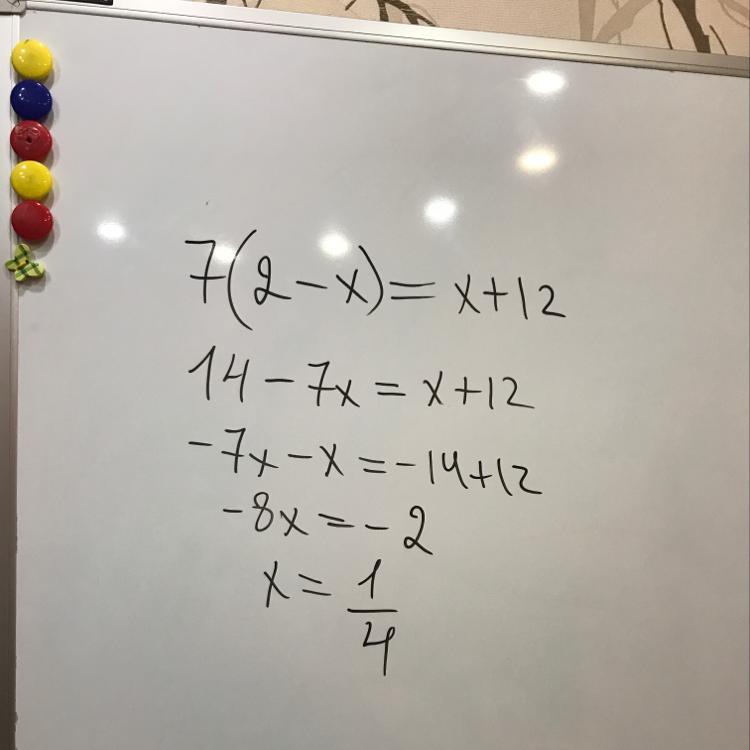 7(2-x)=x+12
14-7x=x+12
-7x-x=-14+12
-8x=-2
x=1/4